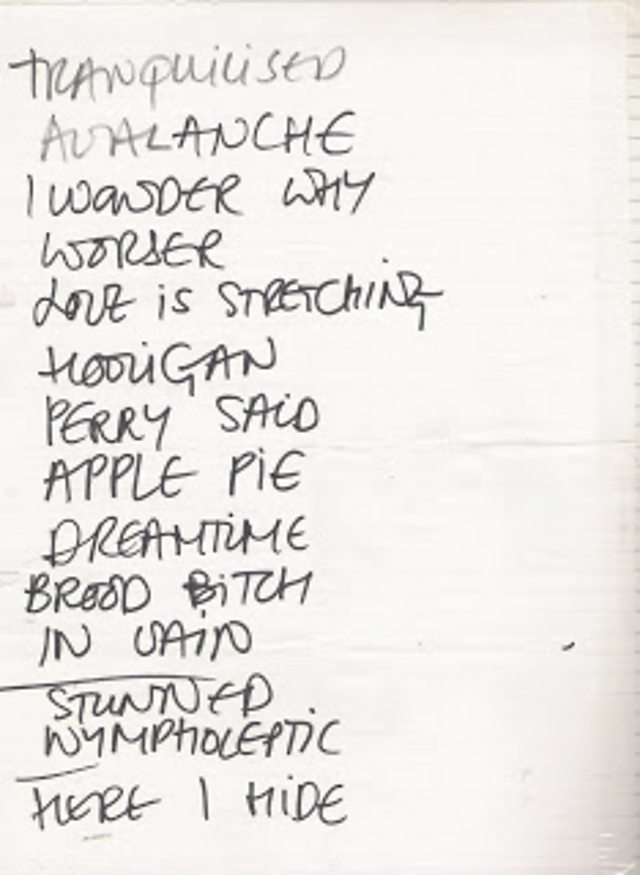 TRANQUILISED
AVALANCHE
I WONDER WHY
WORSER
LOVE IS STRETCHING
HOOLIGAN
PERRY SAID
APPLE PIE
DREAMTIME
BROOD BITCH
IN VAIN
STUNNED
NYMPHOLEPTIC
HERE I HIDE